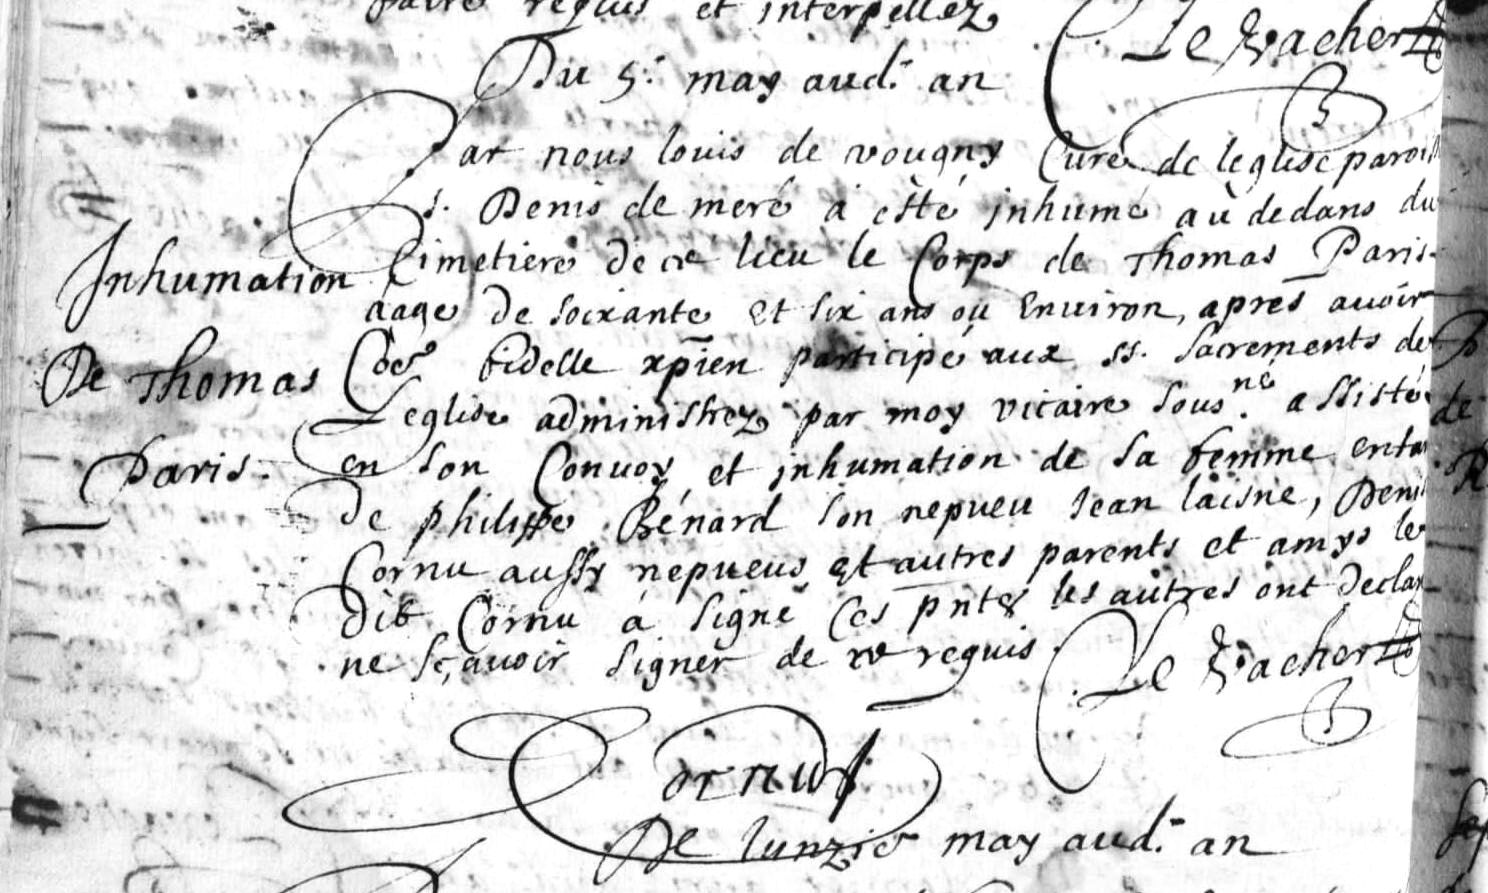 faire requis et interpellez
Le Vacher
Du 5.e may aud.t an
Par nous louis de vougny Curé de leglise parois
s. Denis de meré a esté inhumé au dedans du
Cimetiere de ce lieu le Corps de Thomas Paris
aage de soixante et six ans ou Environ, apres avoir
Coe fidelle xpien participé aux ss. sacrements de
Leglise administrez par moy vicaire sous.né assisté
en son Convoy et inhumation de sa femme
de philippe Bénard son nepueu Jean laisné, Denis
Cornu aussy nepueus et autres parents et amys le
dit Cornu a signé Ces pntes les autres ont declar
ne sçavoir signer de ce requis
Le Vacher
Inhumation
De Thomas
Paris.
Cornu
De lunzie may aud.t an